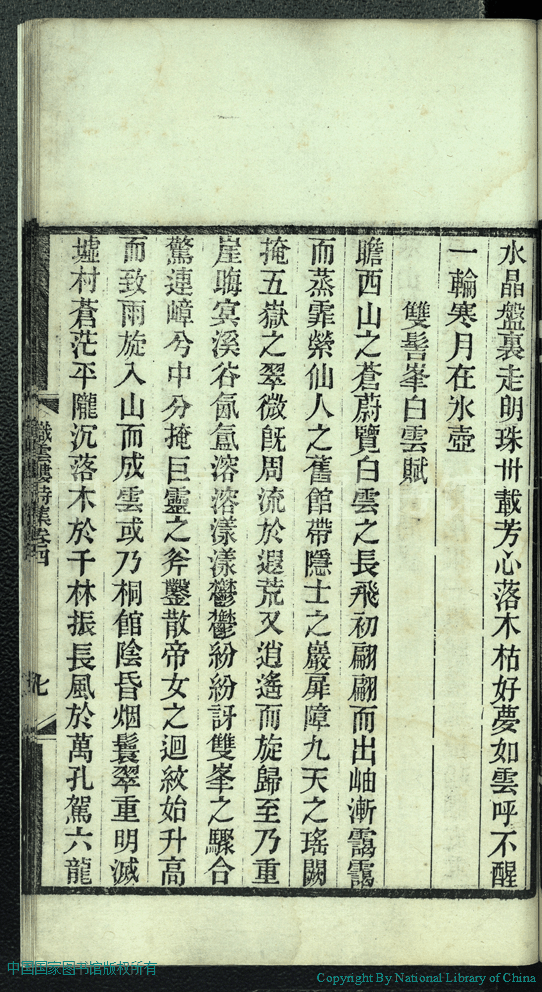 水晶盤裏走明珠卅載芳心落木枯好夢如雲呼不醒
一輪寒月在氷壺
雙髻峯白雲賦
瞻西山之蒼蔚覽白雲之長飛初翩翩而出岫漸靄靄
而蒸霏縈仙人之舊館帶隱士之巖扉障九天之瑤闕
掩五嶽之翠微旣周流於遐荒又逍遙而旋歸至乃重
崖晦冥溪谷氤氳溶溶漾漾鬱鬱紛紛訝雙峯之驟合
驚連嶂兮中分掩巨靈之斧鑿散帝女之迴紋始升高
而致雨旋入山而成雲或乃桐館陰昏烟鬟翠重明滅
墟村蒼茫平隴沉落木於千林振長風於萬孔駕六龍
織雲樓詩集卷四
九
中国国家图书馆版权所有
Copyright By National Library of China